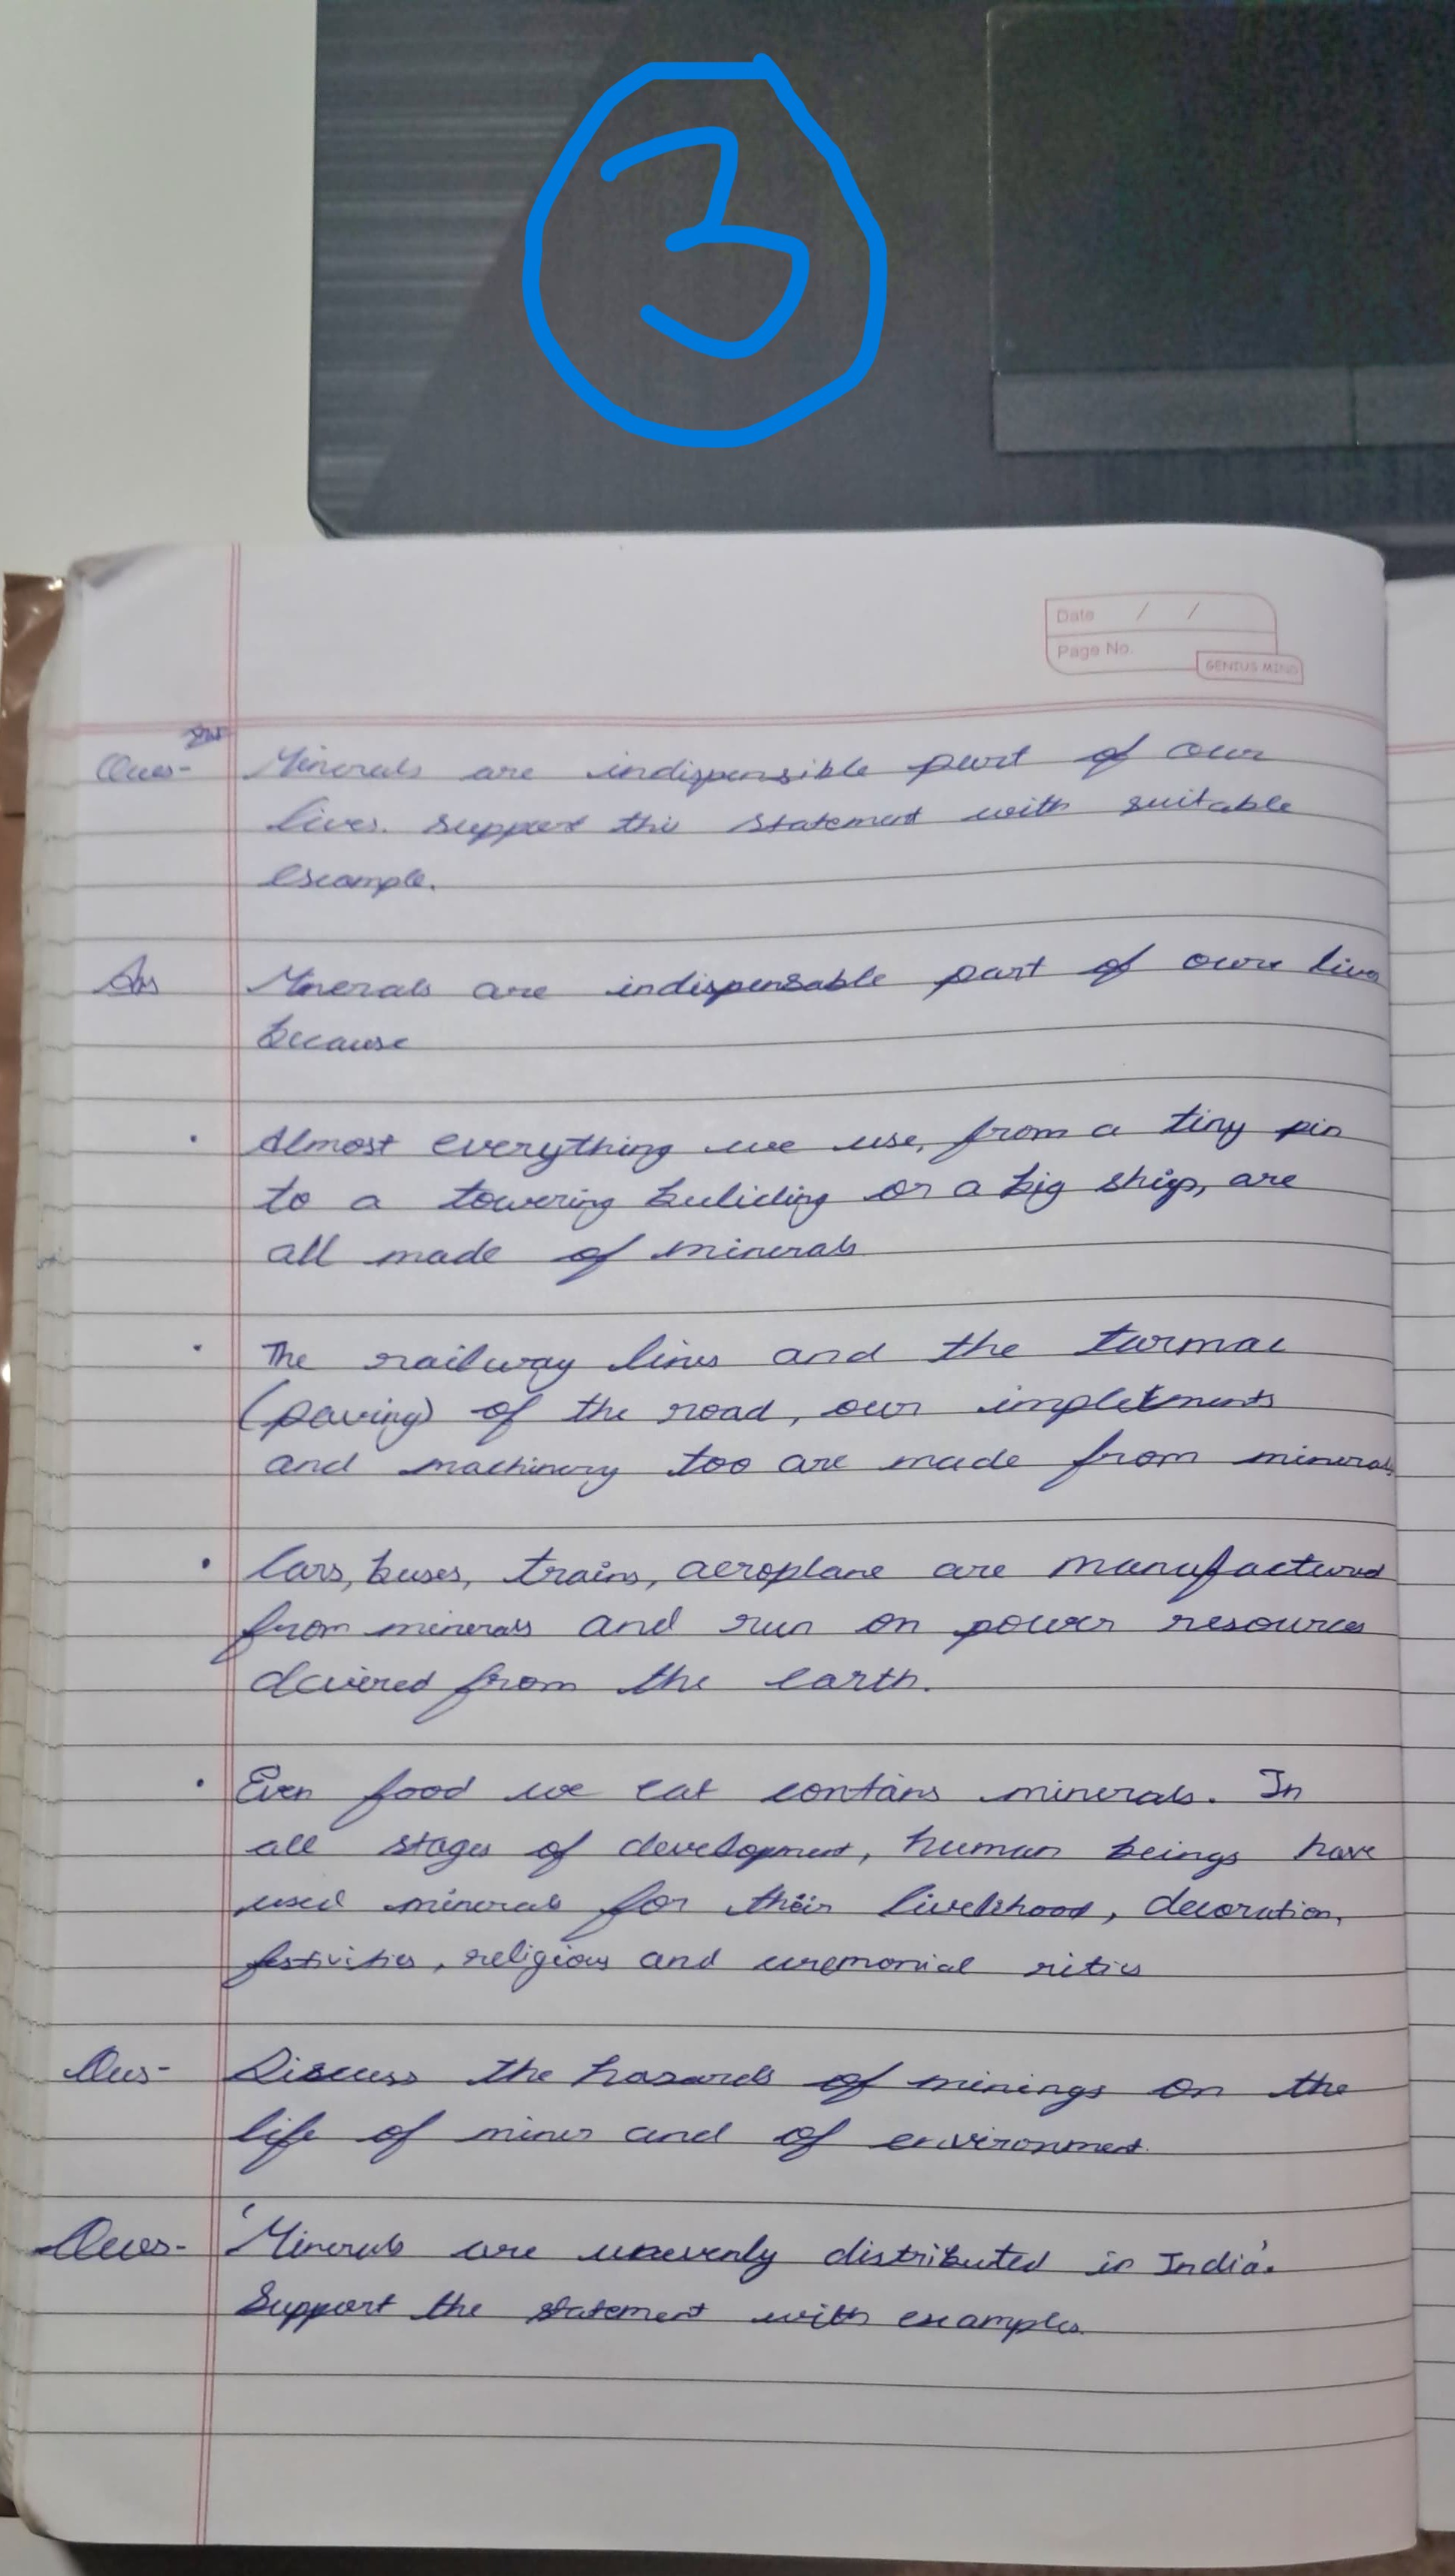 3
Date / /
Page No.
GENIUS MIND
Ques- Minerals are indispensible part of our
lives. Support this statement with suitable
example.
Ans Minerals are indispensable part of our lives
because
• Almost everything we use, from a tiny pin
to a towering buliding or a big ship, are
all made of minerals
• The railway lines and the tarmac
(paving) of the road, our implements
and machinery too are made from minerals
• Cars, buses, trains, aeroplane are manufactured
from minerals and run on power resources
derived from the earth.
• Even food we eat contains minerals. In
all stages of development, human beings have
used minerals for their livelihood, decoration,
festivities, religious and ceremonial rites
Ques- Discuss the hazards of minings on the
life of miner and of environment.
Ques- 'Minerals are unevenly distributed in India'.
Support the statement with examples.